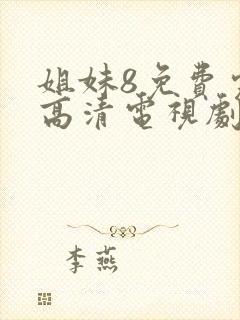 姐妹8免费
高清電視劇
李燕